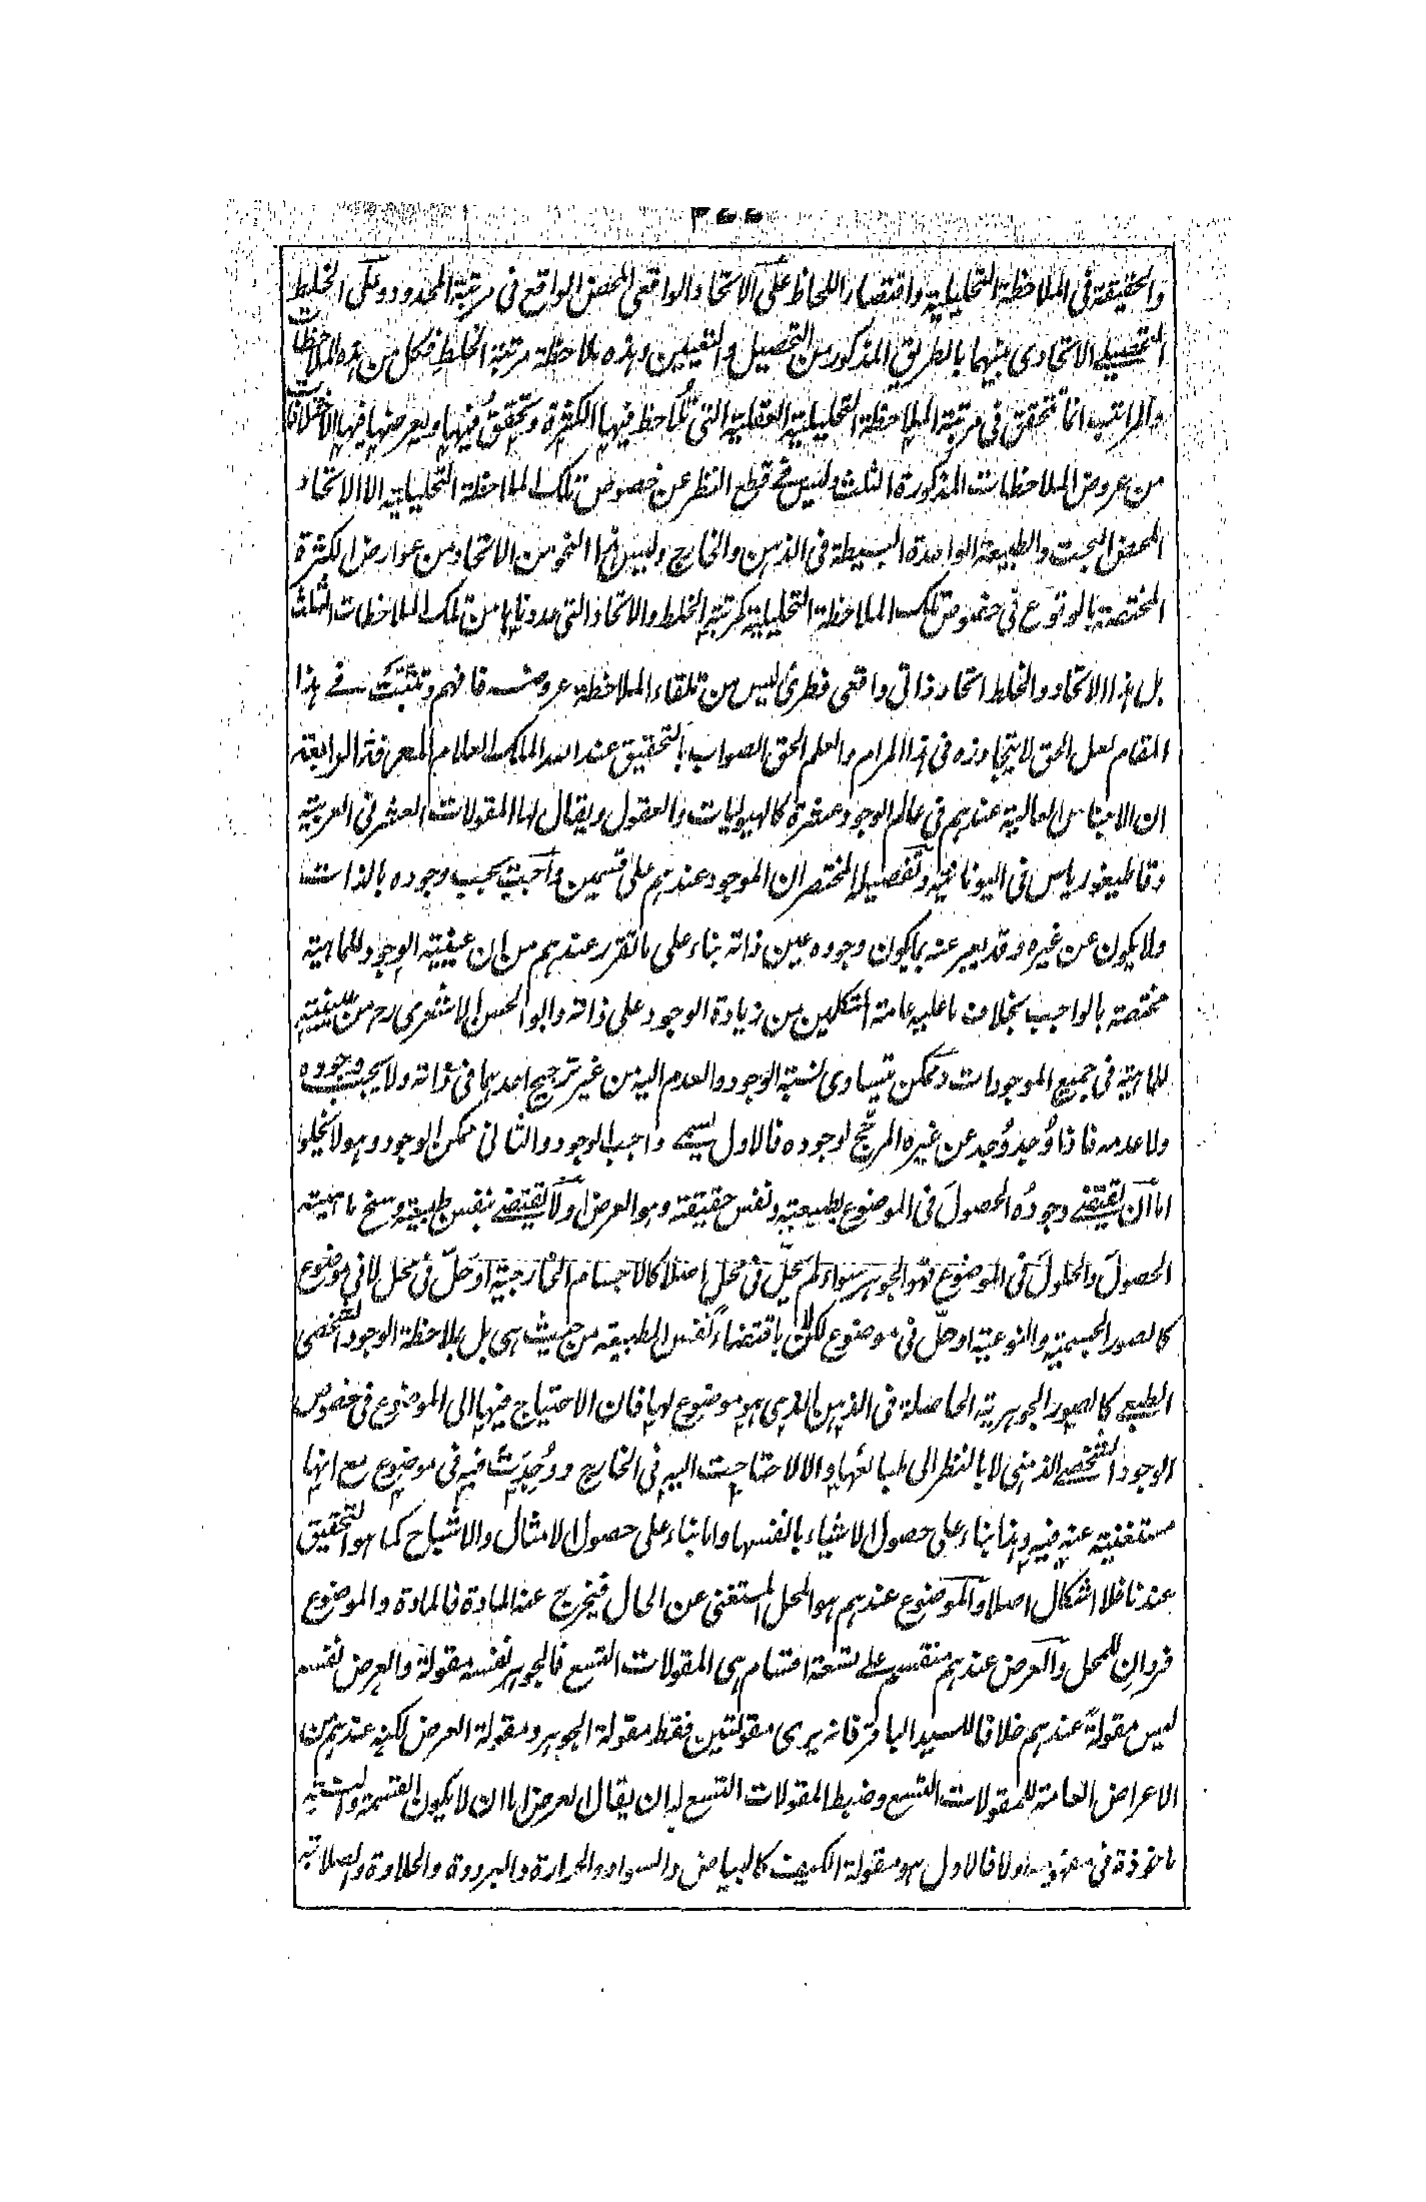 والحقيقة في الملاحظة التحليلية واقتصار اللحاظ على الاتحاد الواقعي المحض الواقع في مرتبة المحدود وعلى الخلط
التحصيلي الاتحادي بينهما بالطريق المذكور من التحصيل والتعيين وهذه ملاحظة مرتبة الخلط فكل من هذه الملاحظات
والمراتب انما تتحقق في مرتبة الملاحظة التحليلية العقلية التي تلاحظ فيها الكثرة وتحقق فيها ويعرضها فيها الاختلافات
من عروض الملاحظات المذكورة الثلث وليس في قطع النظر عن خصوص تلك الملاحظة التحليلية الا الاتحاد
المحض البحت والطبيعة الواحدة البسيطة في الذهن والخارج وليس هذا النحو من الاتحاد من عوارض الكثرة
المختصة بالوقوع في خصوص تلك الملاحظة التحليلية كمرتبة الخلط والاتحاد التي عددناها من تلك الملاحظات الثلث
بل هذا الاتحاد والخلط اتحاد ذاتي واقعي فطري ليس من تلقاء الملاحظة عروضه فافهم وتثبت في هذا
المقام لعل الحق لا يتجاوزه في هذا المرام والعلم الحق الصواب بالتحقيق عند الله الملك العلام المعرفة الرابعة
ان الاجناس العالية عندهم في عالم الوجود عشرة كالهيوليات والعقول ويقال لها المقولات العشر في العربية
وقاطيغورياس في اليونانية وتفصيله المختصر ان الموجود عندهم على قسمين واجب يجب وجوده بالذات
ولا يكون عن غيره وقد يعبر عنه بما يكون وجوده عين ذاته بناء على ما تقرر عندهم من ان عينية الوجود للماهية
مختصة بالواجب بخلاف ما عليه عامة المتكلمين من زيادة الوجود على ذاته وابو الحسن الاشعري رح من عينيته
للماهية في جميع الموجودات وممكن تيساوى نسبة الوجود والعدم اليه من غير ترجيح احدهما في ذاته ولا يجب وجوده
ولا عدمه فاذا وُجد وُجد عن غيره المرجح لوجوده فالاول يسمى واجب الوجود والثاني ممكن الوجود وهو لا يخلوا
اما ان يقتضي وجودُه الحصولَ في الموضوع بطبيعته ونفس حقيقته وهو العرض او لا يقتضي بنفس طبيعته وسنخ ماهيته
الحصولَ والحلولَ في الموضوع فهو الجوهر سواء لم يحلّ في محل اصلا كالاجسام الخارجية او حلّ في محل لا في موضوع
كالصور الجسمية والنوعية او حلّ في موضوع لكن لا باقتضاء نفس الطبيعة من حيث هي بل بملاحظة الوجود الشخصي
الطبعي كالصور الجوهرية الحاصلة في الذهن الذي هو موضوع لها فان الاحتياج فيها الى الموضوع في خصوص
الوجود الشخصي الذهني لا بالنظر الى طبائعها والا لاحتاجت اليه في الخارج ووُجِدَت فيه في موضوع مع انها
مستغنية عنه فيه وهذا بناء على حصول الاشياء بانفسها واما بناء على حصول الامثال والاشباح كما هو التحقيق
عندنا فلا اشكال اصلا والموضوع عندهم هو المحل المستغني عن الحال فيخرج عنه المادة فالمادة والموضوع
فردانِ للمحل والعرض عندهم منقسم على تسعة اقسام هي المقولات التسع فالجوهر نفسه مقولة والعرض نفسه
ليس مقولةً عندهم خلافا للسيد الباقر فانه يرى مقولتين فقط مقولة الجوهر ومقولة العرض لكنه عندهم من
الاعراض العامة للمقولات التسع وضبط المقولات التسع لها ان يقال العرض اما ان لا يكون القسمة والنسبة
ماخوذة في مفهومه اولا فالاول هو مقولة الكيف كالبياض والسواد والحرارة والبرودة والحلاوة والصلابة